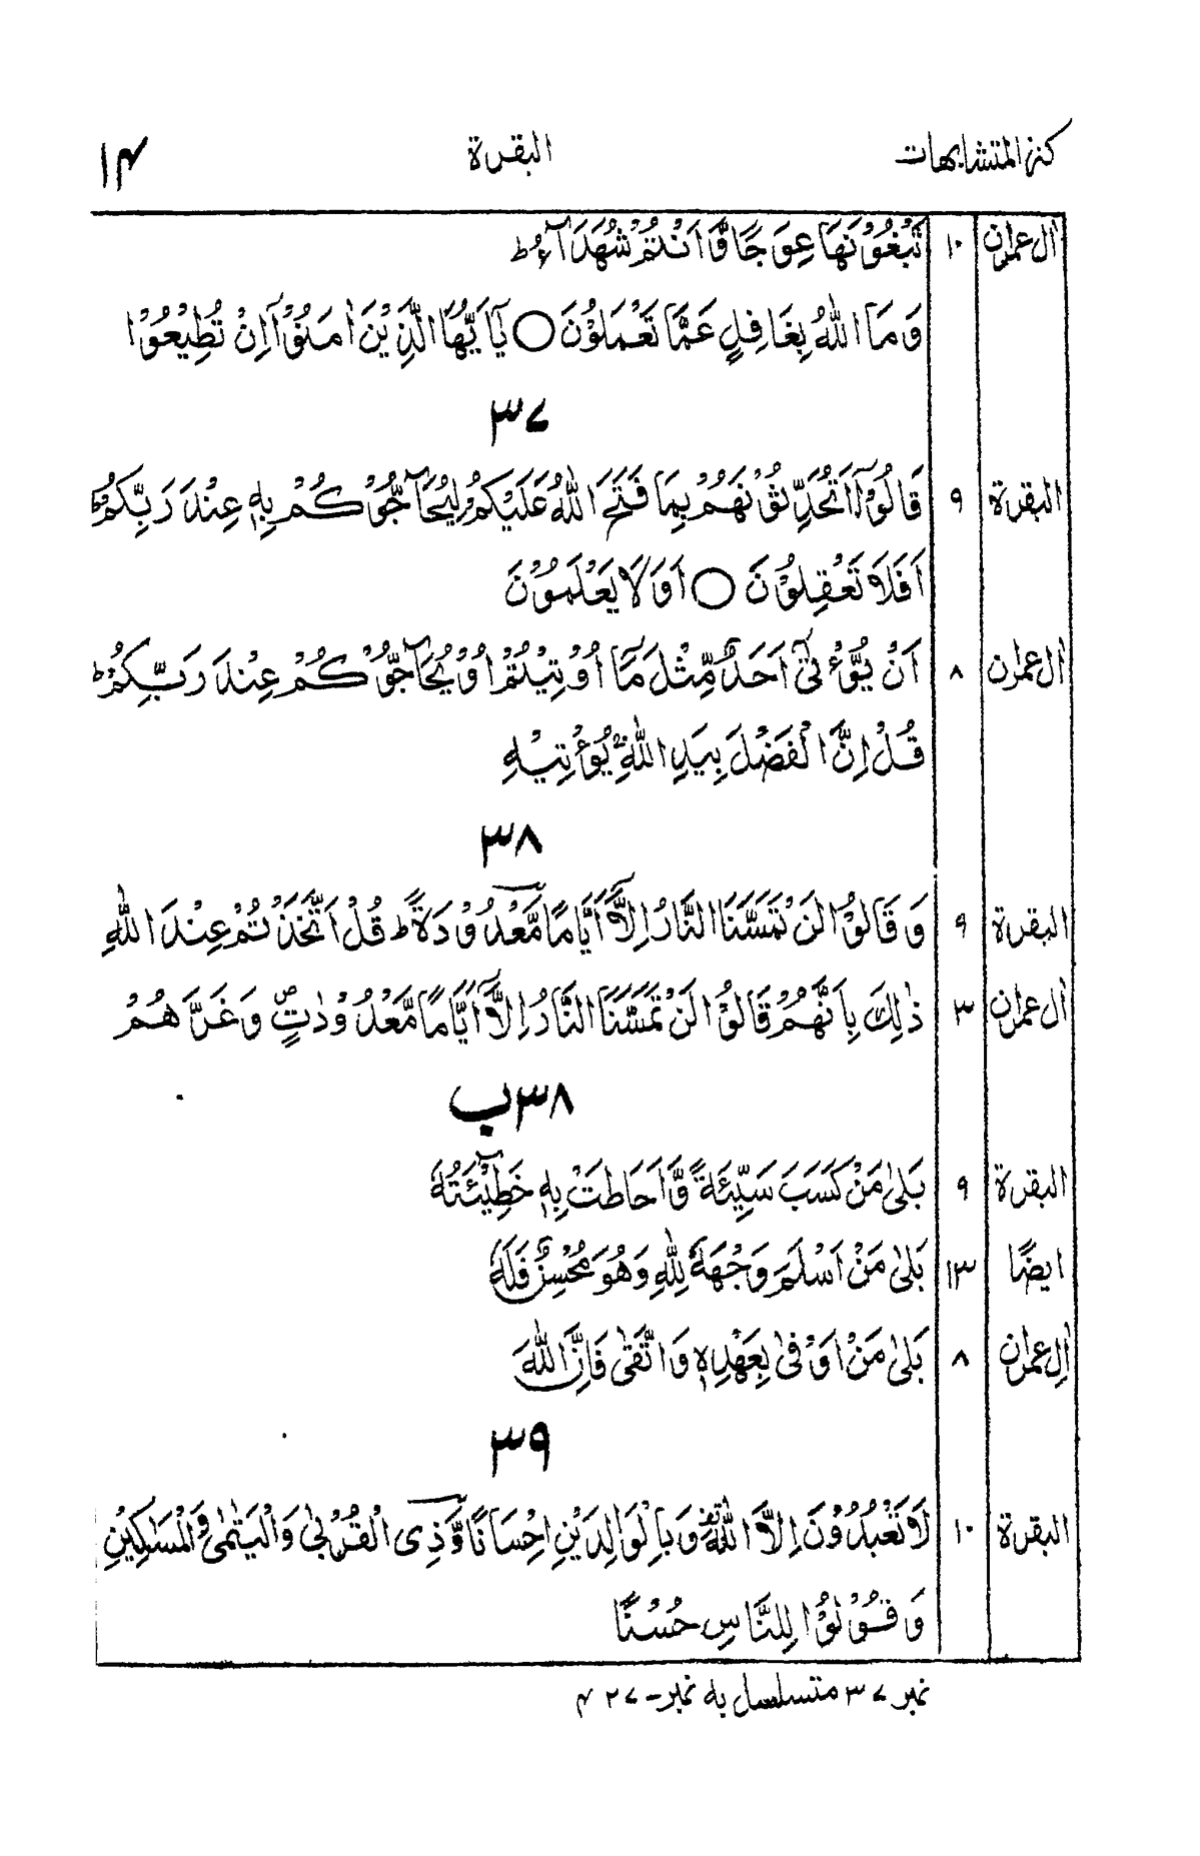 كنز المتشابهات البقرة ۱۴
اٰل عمرٰن ۱۰ تَبْغُوْنَهَا عِوَجًا وَّ اَنْتُمْ شُهَدَآءُ ط
وَ مَا اللّٰهُ بِغَافِلٍ عَمَّا تَعْمَلُوْنَ ○ يٰۤاَيُّهَا الَّذِيْنَ اٰمَنُوْۤا اِنْ تُطِيْعُوْا
۳۷
البقرة ۹ قَالُوْۤا اَتُحَدِّثُوْنَهُمْ بِمَا فَتَحَ اللّٰهُ عَلَيْكُمْ لِيُحَآجُّوْكُمْ بِهٖ عِنْدَ رَبِّكُمْ ط
اَفَلَا تَعْقِلُوْنَ ○ اَوَ لَا يَعْلَمُوْنَ
اٰل عمرٰن ۸ اَنْ يُّؤْتٰۤى اَحَدٌ مِّثْلَ مَاۤ اُوْتِيْتُمْ اَوْ يُحَآجُّوْكُمْ عِنْدَ رَبِّكُمْ ط
قُلْ اِنَّ الْفَضْلَ بِيَدِ اللّٰهِ ۚ يُؤْتِيْهِ
۳۸
البقرة ۹ وَ قَالُوْا لَنْ تَمَسَّنَا النَّارُ اِلَّاۤ اَيَّامًا مَّعْدُوْدَةً ط قُلْ اَتَّخَذْتُمْ عِنْدَ اللّٰهِ
اٰل عمرٰن ۳ ذٰلِكَ بِاَنَّهُمْ قَالُوْا لَنْ تَمَسَّنَا النَّارُ اِلَّاۤ اَيَّامًا مَّعْدُوْدٰتٍ ص وَ غَرَّهُمْ
۳۸ب
البقرة ۹ بَلٰى مَنْ كَسَبَ سَيِّئَةً وَّ اَحَاطَتْ بِهٖ خَطِيْٓئَتُهٗ
ايضًا ۱۳ بَلٰى مَنْ اَسْلَمَ وَجْهَهٗ لِلّٰهِ وَ هُوَ مُحْسِنٌ فَلَهٗ
اٰل عمرٰن ۸ بَلٰى مَنْ اَوْفٰى بِعَهْدِهٖ وَ اتَّقٰى فَاِنَّ اللّٰهَ
۳۹
البقرة ۱۰ لَا تَعْبُدُوْنَ اِلَّا اللّٰهَ قف وَ بِالْوَالِدَيْنِ اِحْسَانًا وَّ ذِى الْقُرْبٰى وَ الْيَتٰمٰى وَ الْمَسٰكِيْنِ
وَ قُوْلُوْا لِلنَّاسِ حُسْنًا
نمبر ۳۷ متسلسل به نمبر- ۴۲۷